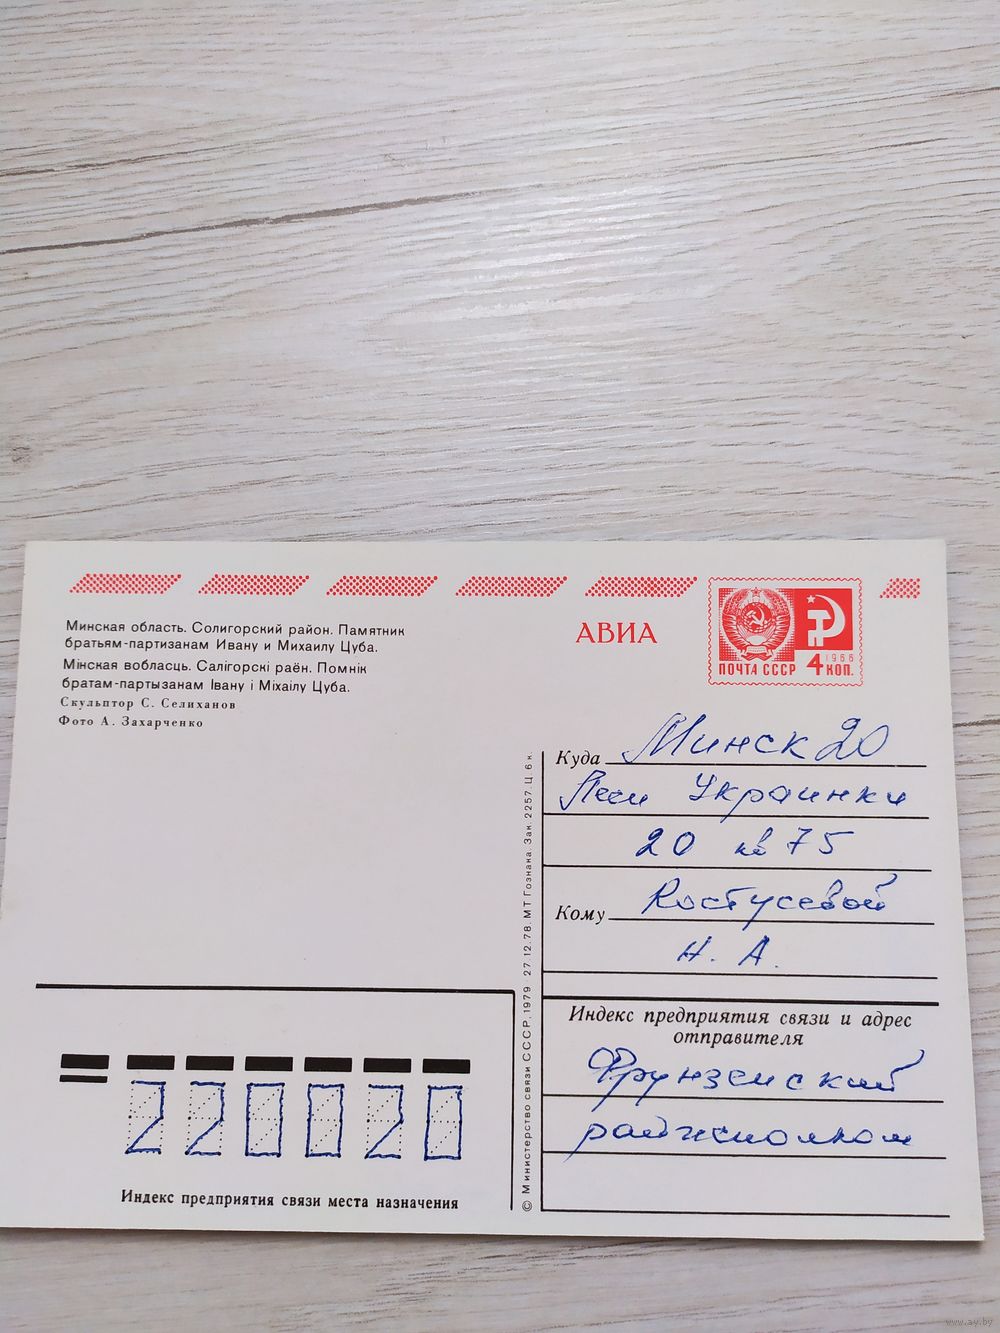 Минская область. Солигорский район. Памятник
братьям-партизанам Ивану и Михаилу Цуба.
Мінская вобласць. Салігорскі раён. Помнік
братам-партызанам Івану і Міхаілу Цуба.
Скульптор С. Селиханов
Фото А. Захарченко
АВИА
ПОЧТА СССР
1966
4 КОП.
Куда Минск 20
Леси Украинки
20 кв 75
Кому Костусевой
Н. А.
Индекс предприятия связи и адрес
отправителя
Фрунзенский
райисполком
© Министерство связи СССР. 1979. 27.12.78. МТ Гознака. Зак. 2257. Ц. 6 к.
220020
Индекс предприятия связи места назначения
www.ay.by